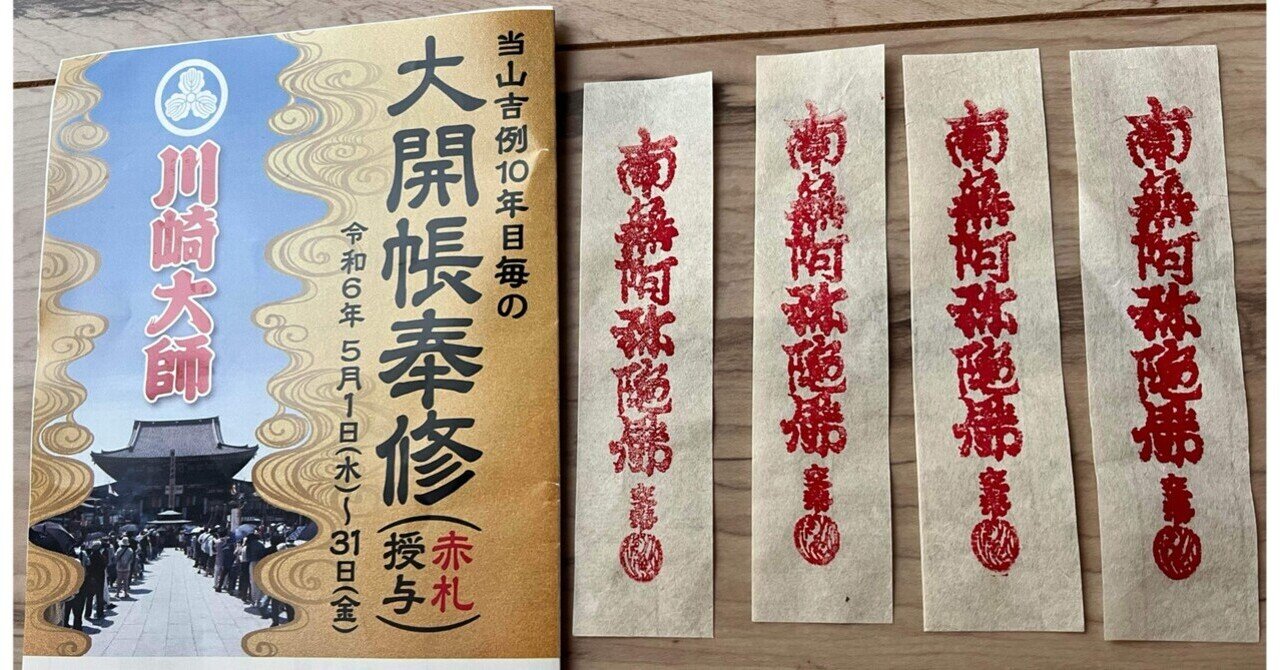 当山吉例10年目毎の
大開帳奉修(赤札授与)
令和6年 5月1日(水)〜31日(金)
川崎大師
南無阿弥陀佛
南無阿弥陀佛
南無阿弥陀佛
南無阿弥陀佛